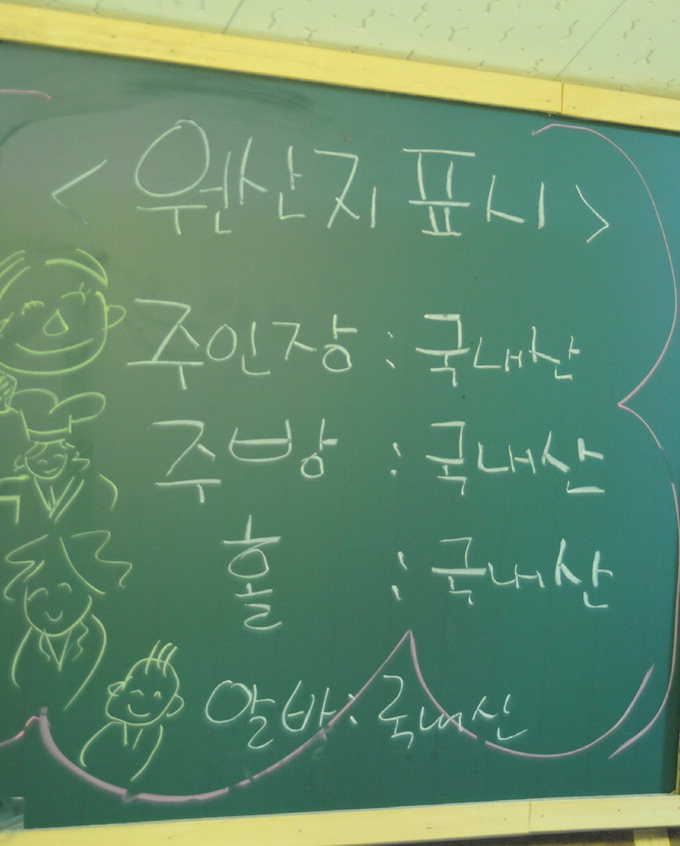 <원산지 표시>
주인장 : 국내산
주방 : 국내산
홀 : 국내산
알바 : 국내산